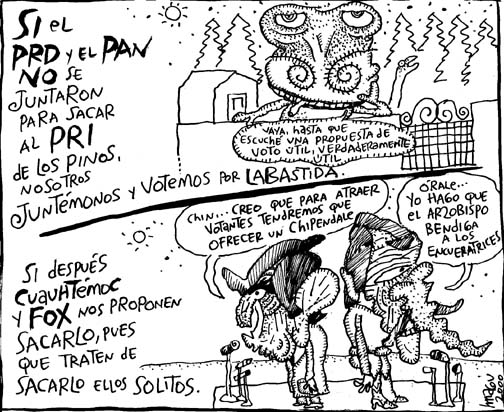 SI el
PRD y el PAN
NO SE
JUNTARON
PARA SACAR
AL PRI
DE LOS PINOS,
NOSOTROS
JUNTÉMONOS y VOTEMOS POR LABASTIDA.
VAYA, HASTA QUE
ESCUCHÉ UNA PROPUESTA DE
VOTO ÚTIL, VERDADERAMENTE
ÚTIL
CHIN... CREO QUE PARA ATRAER
VOTANTES TENDREMOS QUE
OFRECER UN CHIPENDALE
ÓRALE...
YO HAGO QUE
EL ARZOBISPO
BENDIGA
A LOS
ENCUERATRICES
SI DESPUÉS
CUAUHTÉMOC
Y FOX NOS PROPONEN
SACARLO, PUES
QUE TRATEN DE
SACARLO ELLOS SOLITOS.
2000